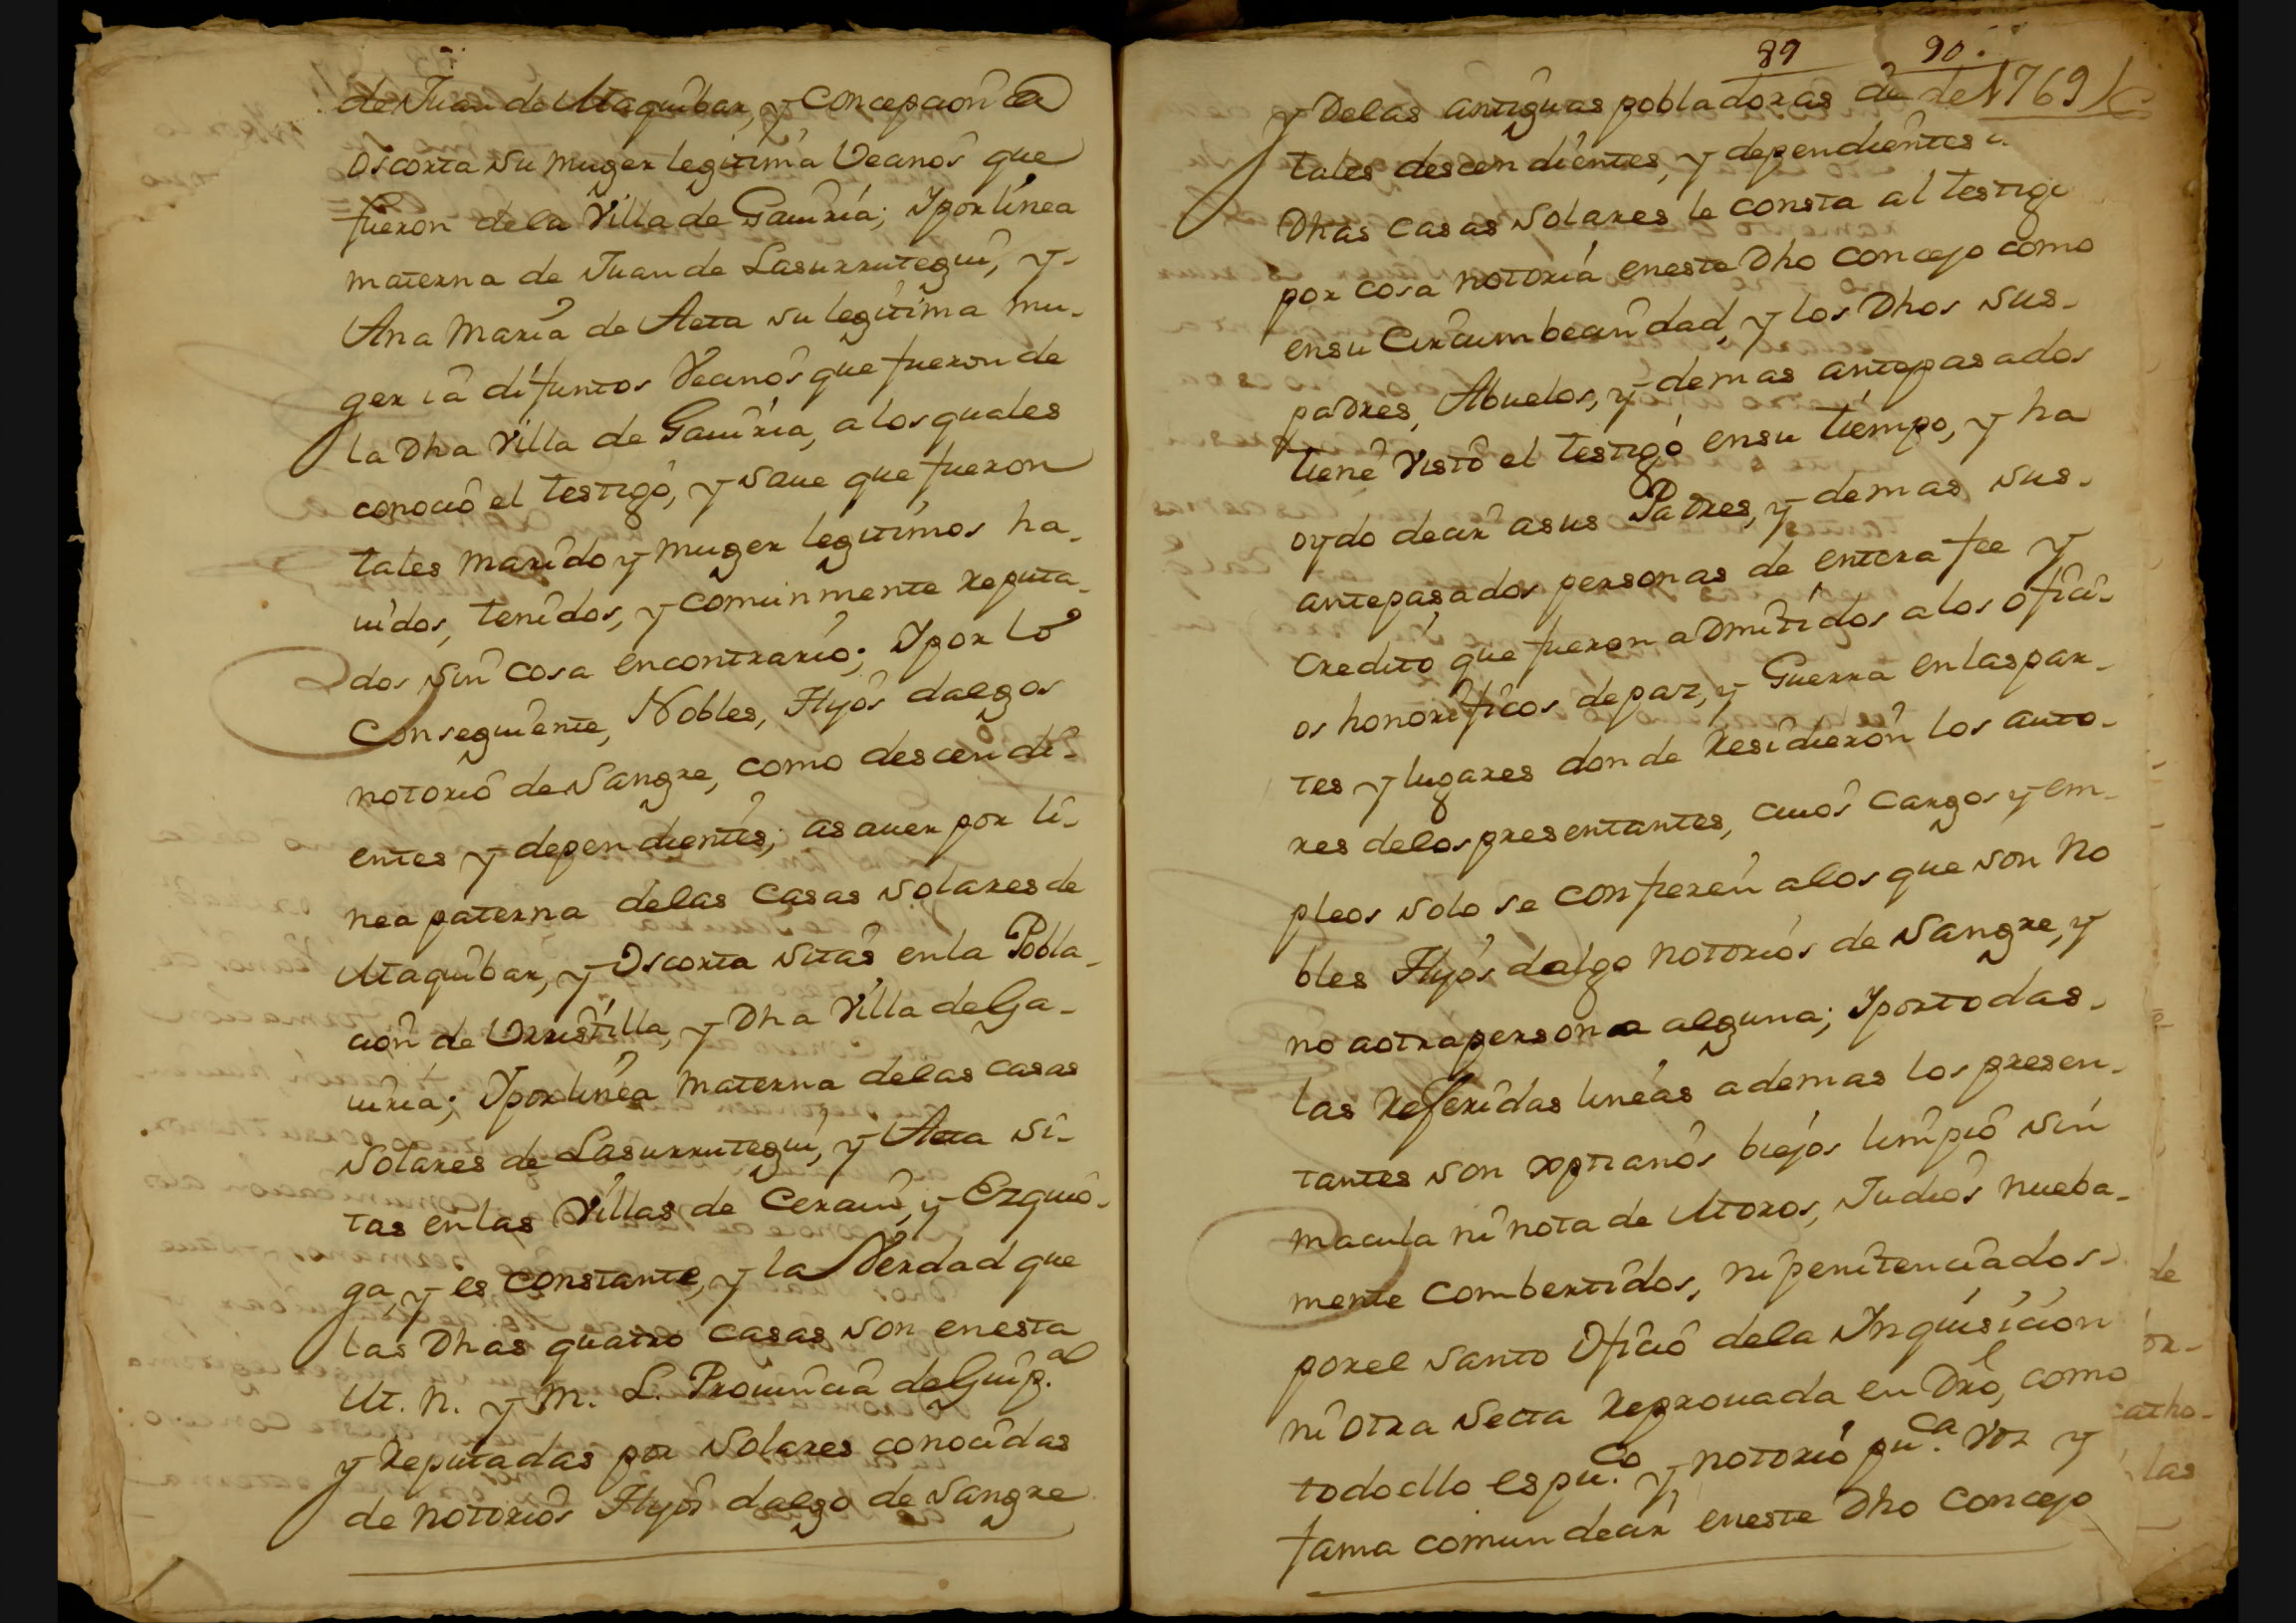 de Juan de Maquibar, y Concepcion de
Oscorta su muger legitima Vecinos que
fueron de la Villa de Gauiria; Y por linea
materna de Juan de Lasurrutegui, y
Ana Maria de Aeta su legitima mu-
ger ia difuntos Vecinos que fueron de
la Dha Villa de Gauiria, a los quales
conocio el testigo, y saue que fueron
tales marido y muger legitimos ha-
uidos, tenidos, y comunmente reputa-
dos sin cosa encontrario; Y por lo
Conseguiente, Nobles, Hijos dalgos
notorio de Sangre, como descendi-
entes y dependientes; asauer por li-
nea paterna de las Casas solares de
Maquibar, y Oscorta sitas en la Pobla-
cion de Urrestilla, y Dha Villa de Ga-
uiria; Y por linea materna de las casas
Solares de Lasurrutegui, y Aeta si-
tas en las Villas de Cerain, y Ezquio-
ga, y es constante, y la Verdad que
las Dhas quatro Casas son en esta
M. N. y M. L. Prouincia de Guip.ca
y reputadas por Solares conocidas
de notorios Hijos dalgo de Sangre
89 90
y De las antiguas pobladoras de de 1769
tales descendientes, y dependientes
Dhas Casas Solares le consta al testigo
por cosa notoria en este Dho Concejo como
en su Circumbecindad, y los Dhos sus
padres, Abuelos, y demas antepasados
tiene Visto el testigo en su tiempo, y ha
oydo decir a sus Padres, y demas sus
antepasados personas de entera fee y
Credito que fueron aDmitidos a los ofici-
os honorificos de paz, y Guerra en las par-
tes y lugares donde Residieron los auto-
res de los presentantes, cuios Cargos y em-
pleos solo se confieren a los que son No
bles Hijos dalgo notorios de Sangre, y
no a otra persona alguna; Y por todas
las Referidas lineas ademas los presen-
tantes son xptianos biejos limpio sin
macula ni nota de Moros, Judios nueba-
mente Combertidos, ni penitenciados
por el Santo Oficio de la Inquisicion
ni otra Secta Reprouada en Dro, como
todo ello es pu.co y notorio pu.ca voz y
fama comun decir en este Dho Concejo
de
or-
catho-
las